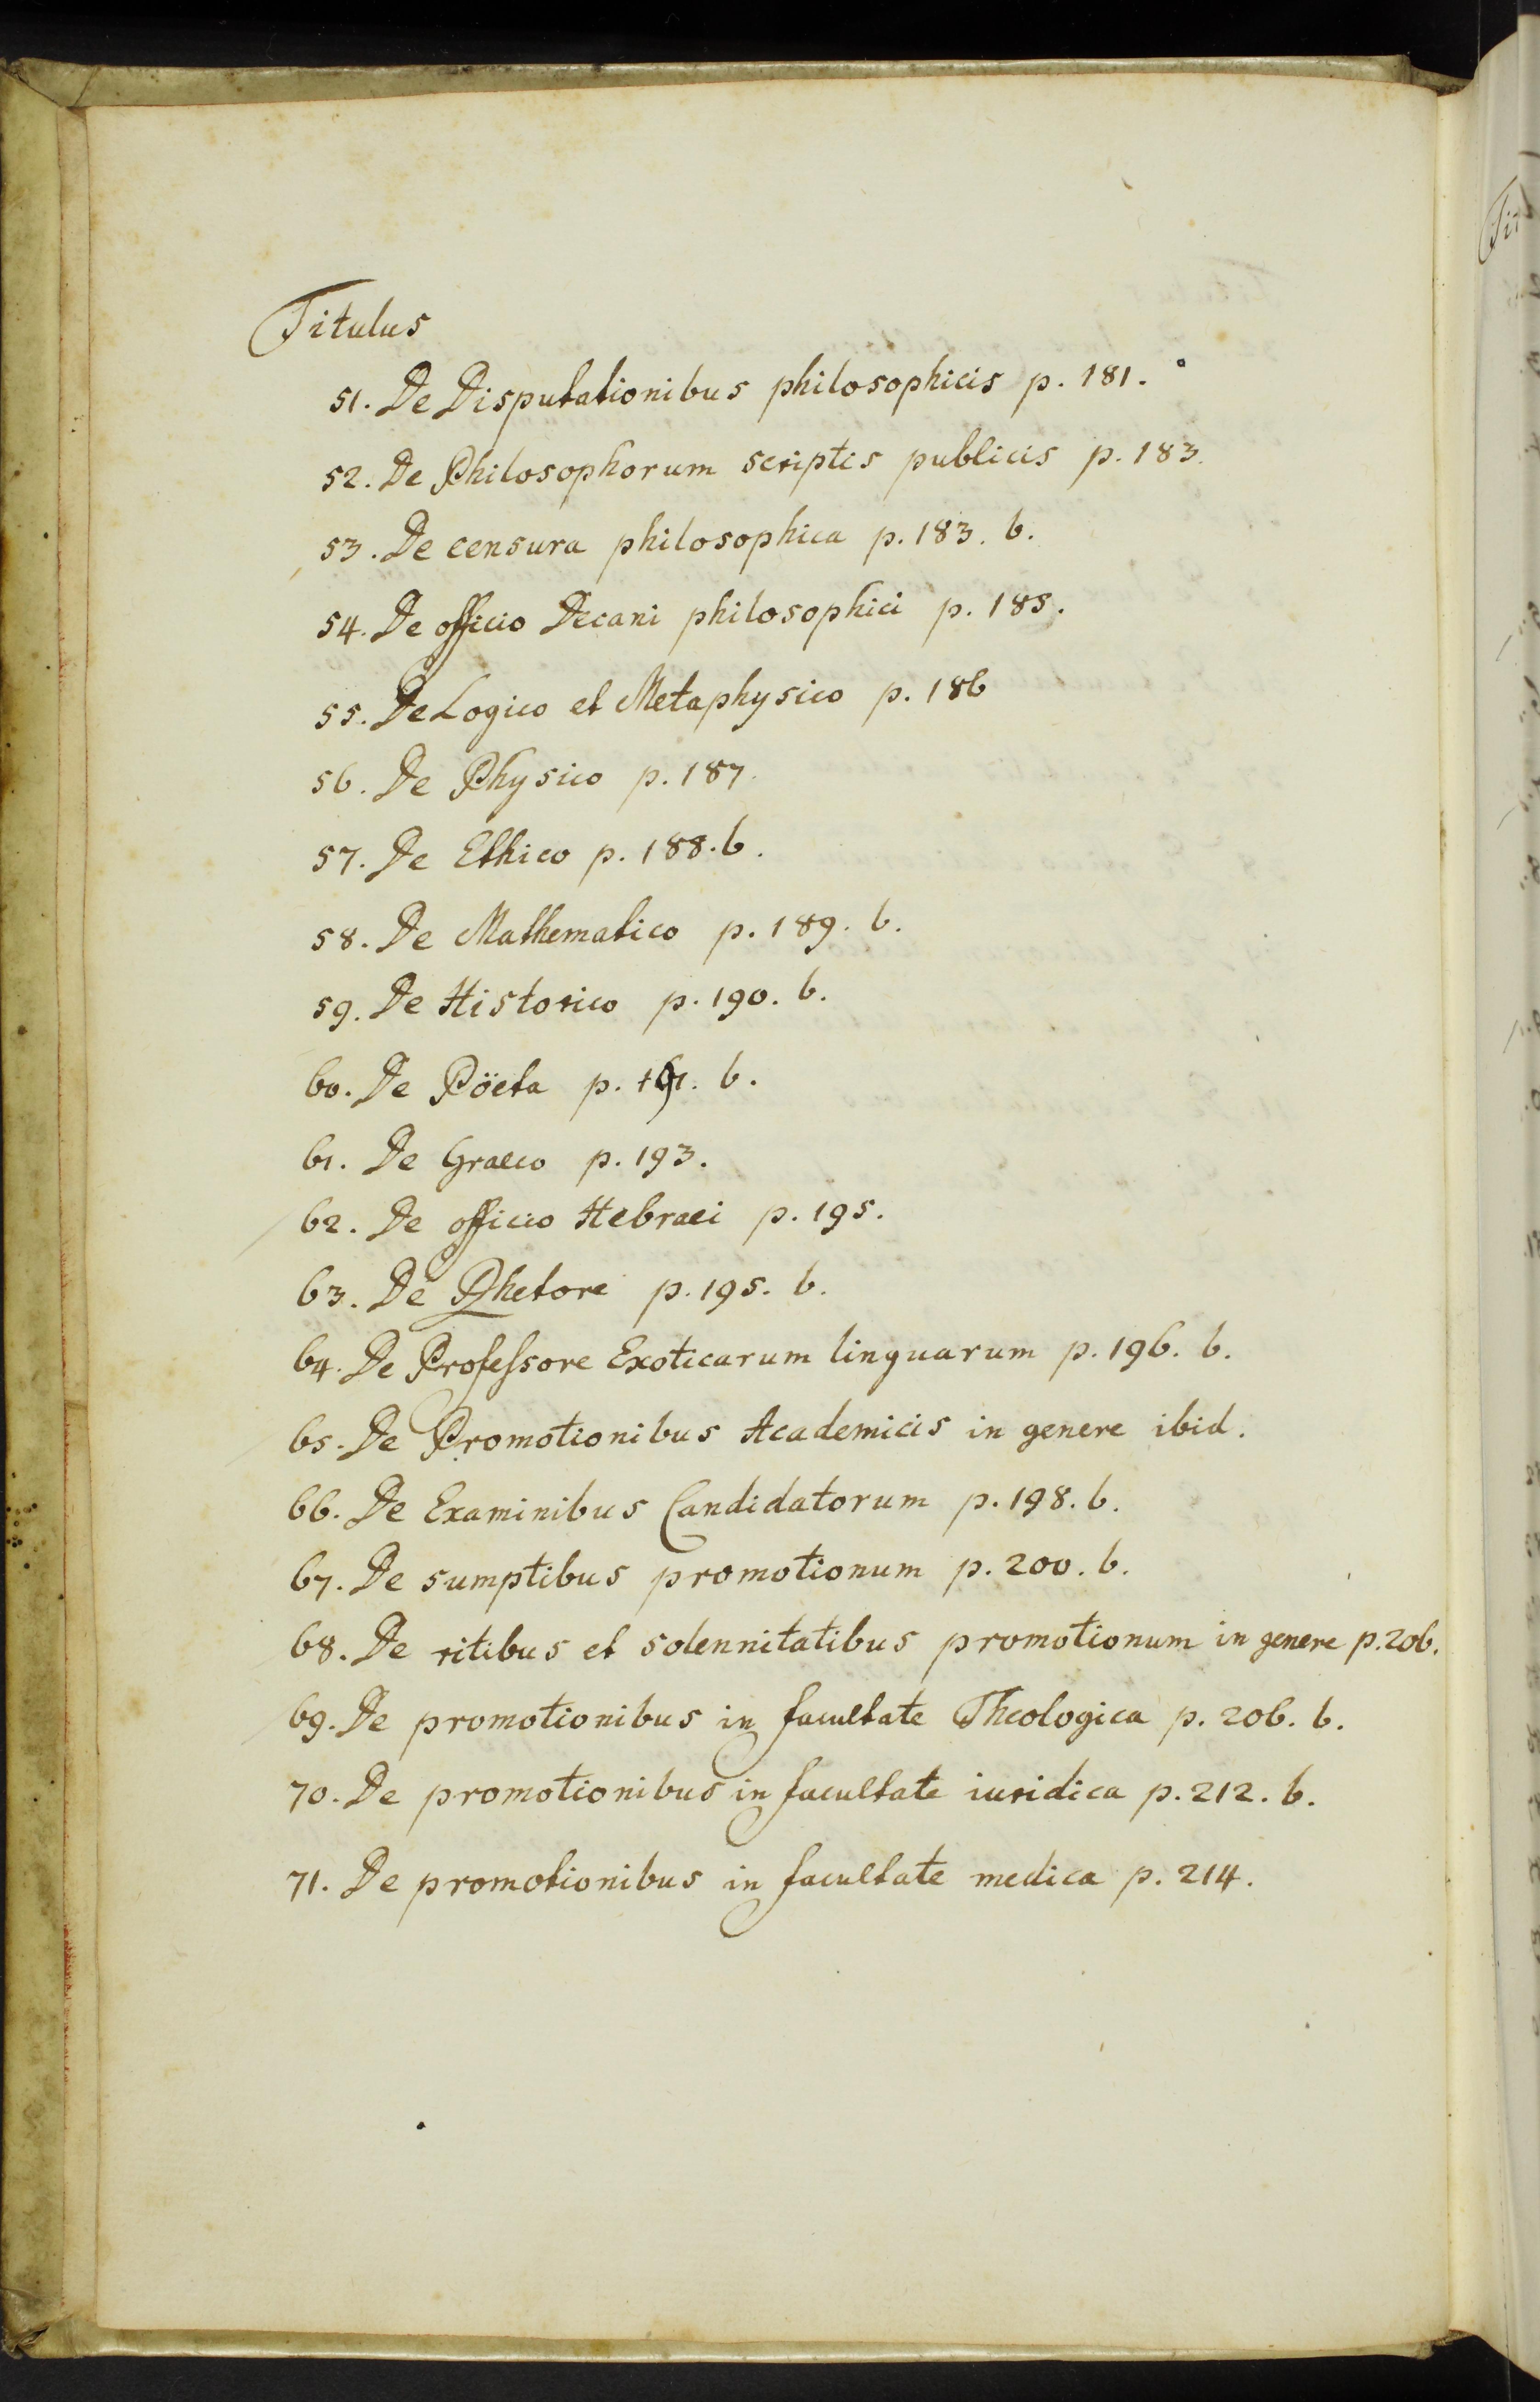 Titulus
51. De Disputationibus philosophicis p. 181.
52. De Philosophorum scriptis publicis p. 183.
53. De censura philosophica p. 183. b.
54. De officio Decani philosophici p. 185.
55. De Logico et Metaphysico p. 186
56. De Physico p. 187.
57. De Ethico p. 188. b.
58. De Mathematico p. 189. b.
59. De Historico p. 190. b.
60. De Pöeta p. 191. b.
61. De Graeco p. 193.
62. De officio Hebraei p. 195.
63. De Rhetore p. 195. b.
64. De Professore Exoticarum linguarum p. 196. b.
65. De Promotionibus Academicis in genere ibid.
66. De Examinibus Candidatorum p. 198. b.
67. De sumptibus promotionum p. 200. b.
68. De ritibus et solennitatibus promotionum in genere p. 206.
69. De promotionibus in facultate Theologica p. 206. b.
70. De promotionibus in facultate iuridica p. 212. b.
71. De promotionibus in facultate medica p. 214.